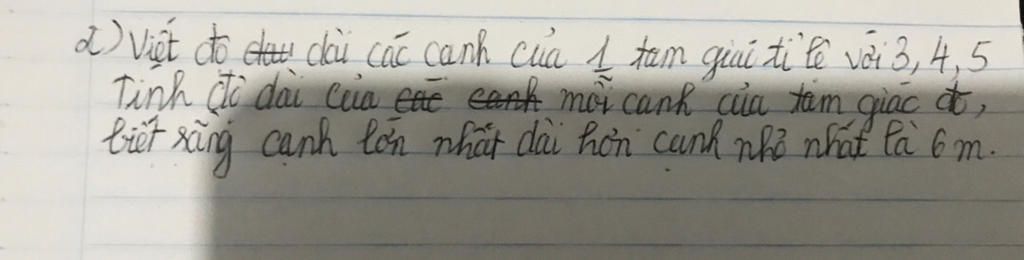 2) Viết độ dài các cạnh của 1 tam giác tỉ lệ với 3, 4, 5
Tính độ dài của mỗi cạnh của tam giác đó,
biết rằng cạnh lớn nhất dài hơn cạnh nhỏ nhất là 6 m.